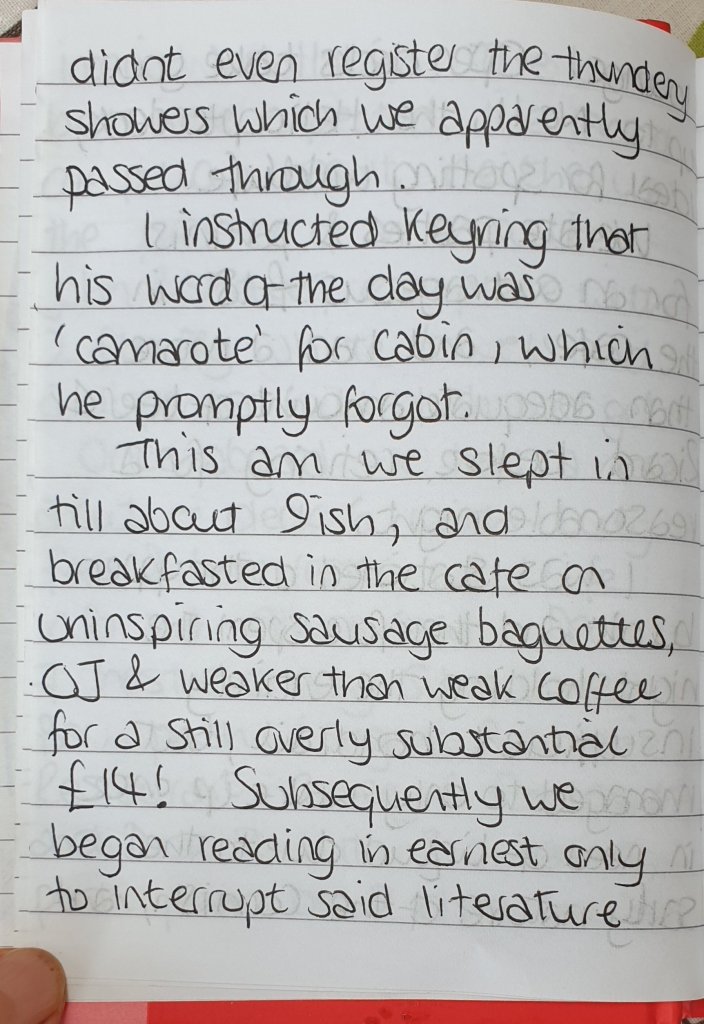 didnt even register the thundery
showers which we apparently
passed through.
I instructed Keyring that
his word of the day was
'camarote' for cabin, which
he promptly forgot.
This am we slept in
till about 9ish, and
breakfasted in the cafe on
uninspiring sausage baguettes,
OJ & weaker than weak coffee
for a still overly substantial
£14! Subsequently we
began reading in earnest only
to interrupt said literature